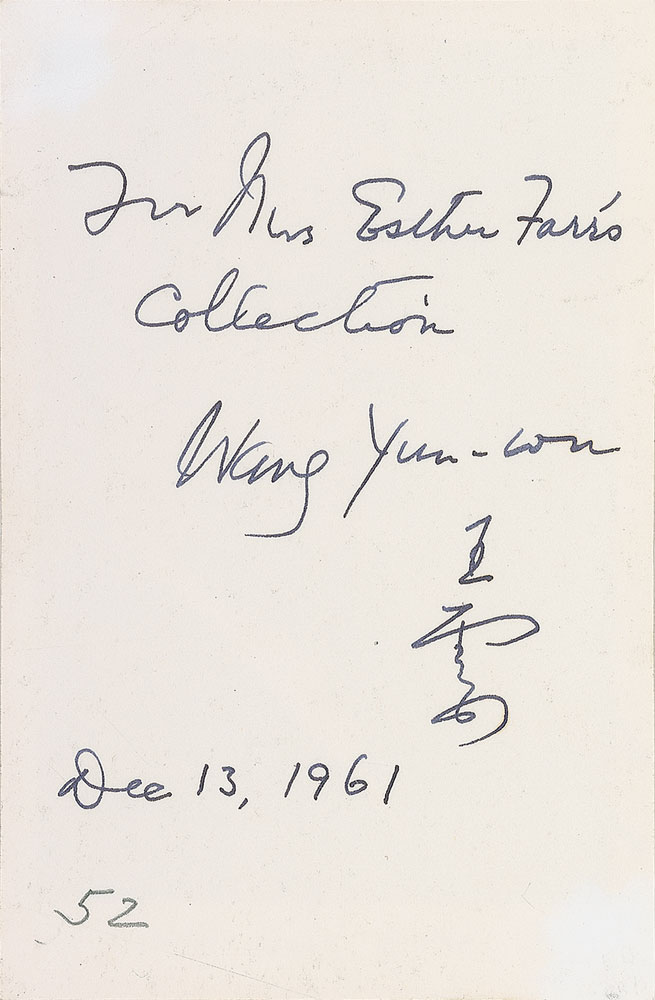 For Mrs Esther Farr's
Collection
Wang Yun-wu
王
雲
五
Dec 13, 1961
52